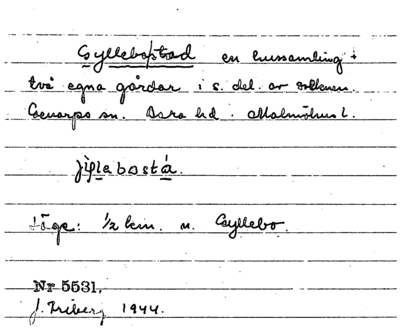 Gyllebostad en hussamling +
två egna gårdar i s. del. av socknen.
Genarps sn. Bara hd. Malmöhus l.
jỳlabostá.
Läge: ½ km. n. Gyllebo.
Nr 5531.
J. Friberg 1944.